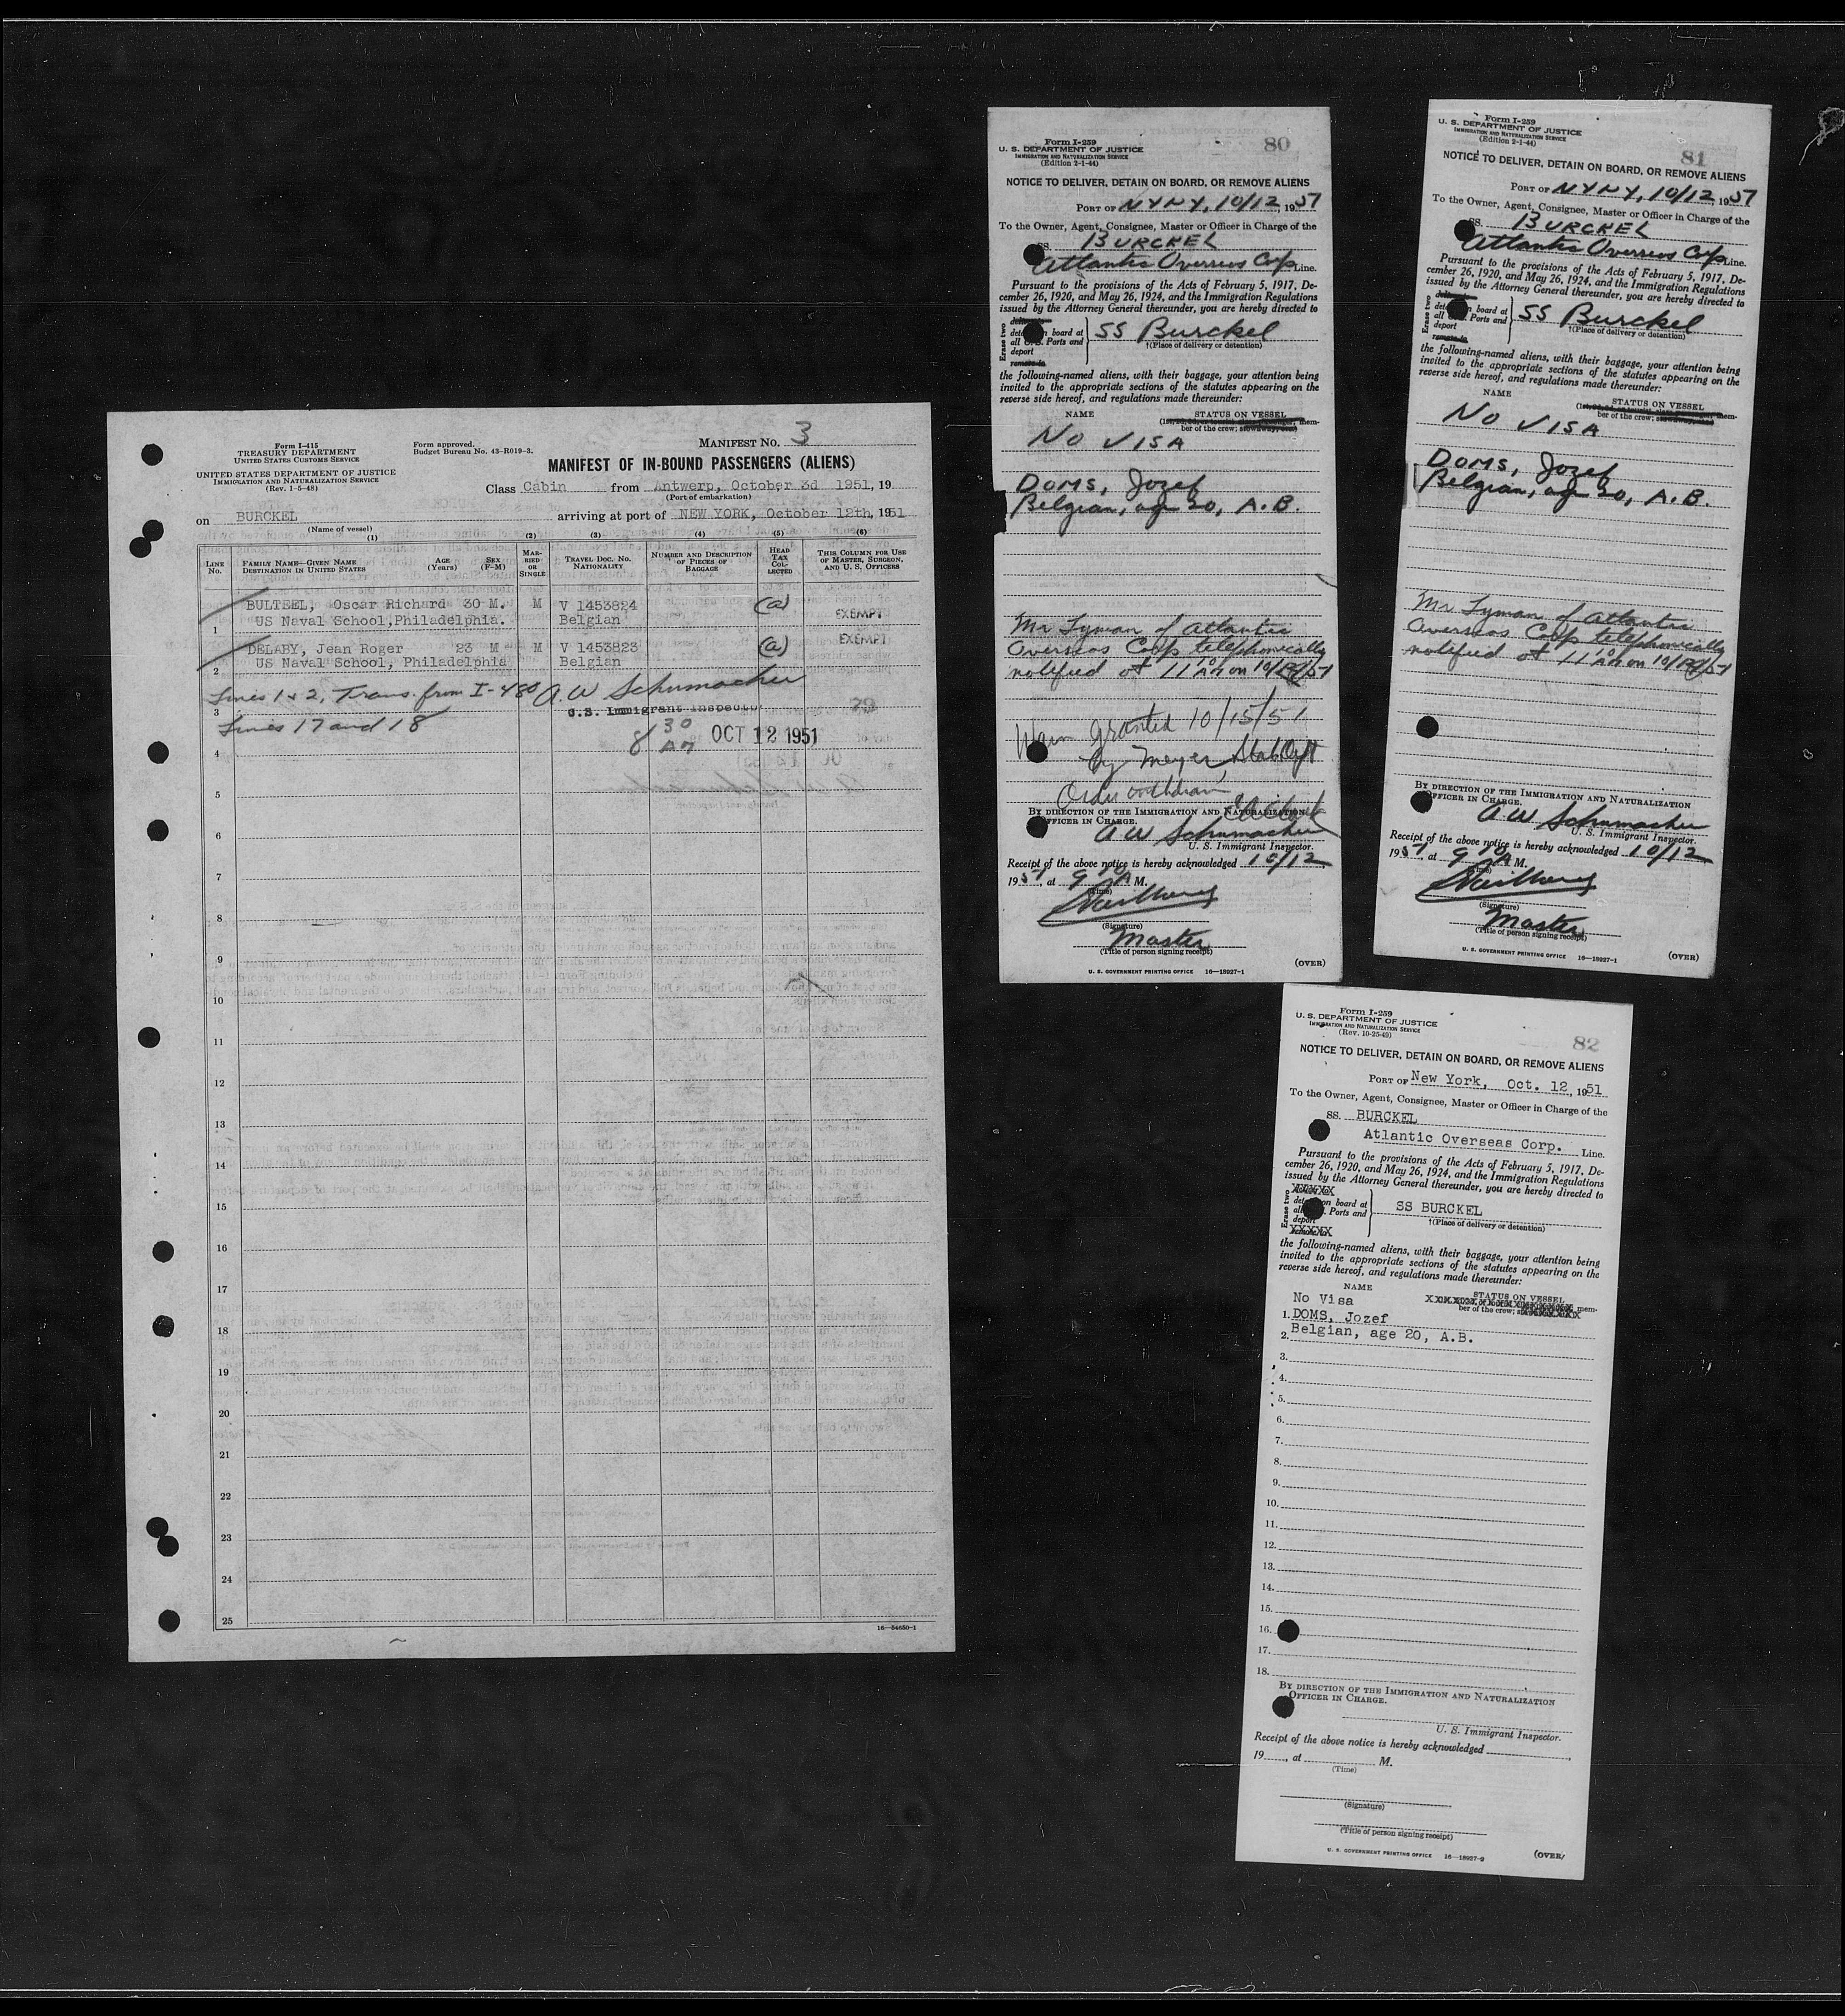 Form I-415
TREASURY DEPARTMENT
UNITED STATES CUSTOMS SERVICE
UNITED STATES DEPARTMENT OF JUSTICE
IMMIGRATION AND NATURALIZATION SERVICE
(Rev. 1-5-48)
Form approved.
Budget Bureau No. 43-R019-3.
MANIFEST NO. 3
MANIFEST OF IN-BOUND PASSENGERS (ALIENS)
Class Cabin from Antwerp, October 3d 1951, 19
(Port of embarkation)
on BURCKEL arriving at port of NEW YORK, October 12th, 1951
(Name of vessel)
(1) (2) (3) (4) (5) (6)
LINE No.
FAMILY NAME—GIVEN NAME
DESTINATION IN UNITED STATES
AGE (Years)
SEX (F-M)
MARRIED OR SINGLE
TRAVEL DOC. NO.
NATIONALITY
NUMBER AND DESCRIPTION OF PIECES OF BAGGAGE
HEAD TAX COLLECTED
THIS COLUMN FOR USE OF MASTER, SURGEON, AND U. S. OFFICERS
BULTEEL, Oscar Richard 30 M. M V 1453824 (a) EXEMPT
1 US Naval School,Philadelphia. Belgian
DELABY, Jean Roger 23 M M V 1453823 (a) EXEMPT
2 US Naval School, Philadelphia Belgian
Lines 1 & 2, Trans. from I-480 A. W Schumacher
3 U.S. Immigrant Inspector 79
Lines 17 and 18
8 30 AM OCT 12 1951
4
5
6
7
8
9
10
11
12
13
14
15
16
17
18
19
20
21
22
23
24
25
16—54650-1
Form I-259
U. S. DEPARTMENT OF JUSTICE
IMMIGRATION AND NATURALIZATION SERVICE
(Edition 2-1-44)
80
NOTICE TO DELIVER, DETAIN ON BOARD, OR REMOVE ALIENS
PORT OF NYNY, 10/12, 1951
To the Owner, Agent, Consignee, Master or Officer in Charge of the
SS. BURCKEL
Atlantic Overseas Corp Line.
Pursuant to the provisions of the Acts of February 5, 1917, De-
cember 26, 1920, and May 26, 1924, and the Immigration Regulations
issued by the Attorney General thereunder, you are hereby directed to
Erase two
on board at
all U.S. Ports and
deport
remove to
SS Burckel
†(Place of delivery or detention)
the following-named aliens, with their baggage, your attention being
invited to the appropriate sections of the statutes appearing on the
reverse side hereof, and regulations made thereunder:
NAME STATUS ON VESSEL
(1st, 2d, 3d, or tourist class passenger, mem-
ber of the crew; stowaway, etc.)
NO VISA
DOMS, Jozef
Belgian, age 20, A.B.
Mr Lyman of Atlantic
Overseas Corp telephonically
notified at 11 10 AM on 10/12/51
granted 10/15/51
by Meyer,
Order withdrawn
BY DIRECTION OF THE IMMIGRATION AND NATURALIZATION
OFFICER IN CHARGE.
A W Schumacher
U. S. Immigrant Inspector.
Receipt of the above notice is hereby acknowledged 10/12
1951, at 9 10 A M.
(Time)
(Signature)
Master
(Title of person signing receipt)
U. S. GOVERNMENT PRINTING OFFICE 16—18927-1
(OVER)
Form I-259
U. S. DEPARTMENT OF JUSTICE
IMMIGRATION AND NATURALIZATION SERVICE
(Edition 2-1-44)
81
NOTICE TO DELIVER, DETAIN ON BOARD, OR REMOVE ALIENS
PORT OF NYNY, 10/12, 1951
To the Owner, Agent, Consignee, Master or Officer in Charge of the
SS. BURCKEL
Atlantic Overseas Corp Line.
Pursuant to the provisions of the Acts of February 5, 1917, De-
cember 26, 1920, and May 26, 1924, and the Immigration Regulations
issued by the Attorney General thereunder, you are hereby directed to
Erase two
on board at
all U.S. Ports and
deport
remove to
SS Burckel
†(Place of delivery or detention)
the following-named aliens, with their baggage, your attention being
invited to the appropriate sections of the statutes appearing on the
reverse side hereof, and regulations made thereunder:
NAME STATUS ON VESSEL
(1st, 2d, 3d, or tourist class passenger, mem-
ber of the crew; stowaway, etc.)
NO VISA
DOMS, Jozef
Belgian, age 20, A.B.
Mr Lyman of Atlantic
Overseas Corp telephonically
notified at 11 10 AM on 10/12/51
BY DIRECTION OF THE IMMIGRATION AND NATURALIZATION
OFFICER IN CHARGE.
A W Schumacher
U. S. Immigrant Inspector.
Receipt of the above notice is hereby acknowledged 10/12
1951, at 9 10 A M.
(Time)
(Signature)
Master
(Title of person signing receipt)
U. S. GOVERNMENT PRINTING OFFICE 16—18927-1
(OVER)
Form I-259
U. S. DEPARTMENT OF JUSTICE
IMMIGRATION AND NATURALIZATION SERVICE
(Rev. 10-25-49)
82
NOTICE TO DELIVER, DETAIN ON BOARD, OR REMOVE ALIENS
PORT OF New York, Oct. 12, 1951
To the Owner, Agent, Consignee, Master or Officer in Charge of the
SS. BURCKEL
Atlantic Overseas Corp. Line.
Pursuant to the provisions of the Acts of February 5, 1917, De-
cember 26, 1920, and May 26, 1924, and the Immigration Regulations
issued by the Attorney General thereunder, you are hereby directed to
Erase two
XXXXX
on board at
all U.S. Ports and
deport
XXXXX
SS BURCKEL
†(Place of delivery or detention)
the following-named aliens, with their baggage, your attention being
invited to the appropriate sections of the statutes appearing on the
reverse side hereof, and regulations made thereunder:
NAME STATUS ON VESSEL
mem-
ber of the crew;
No Visa
1. DOMS, Jozef
2. Belgian, age 20, A.B.
3.
4.
5.
6.
7.
8.
9.
10.
11.
12.
13.
14.
15.
16.
17.
18.
BY DIRECTION OF THE IMMIGRATION AND NATURALIZATION
OFFICER IN CHARGE.
U. S. Immigrant Inspector.
Receipt of the above notice is hereby acknowledged
19, at M.
(Time)
(Signature)
(Title of person signing receipt)
U. S. GOVERNMENT PRINTING OFFICE 16—18927-2
(OVER)